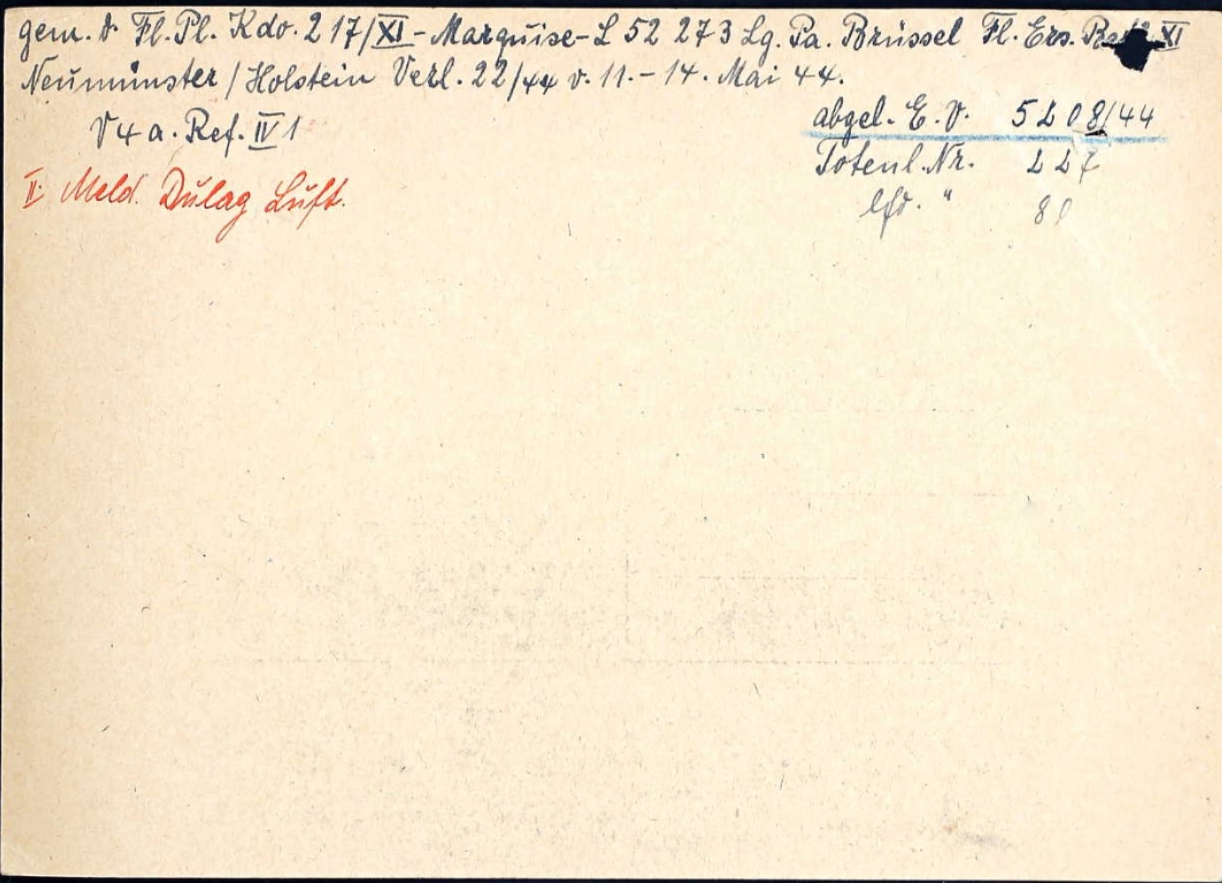 gem. d. Fl. Pl. Kdo. 217/XI - Marquise - L 52 273 Lg. Pa. Brüssel Fl. Ers. XI
Neumünster / Holstein Verl. 22/44 v. 11. - 14. Mai 44.
V4 a. Ref. IV 1
abgel. E. V. 5208/44
Totenl. Nr. 227
lfd. " 81
II. Meld. Dulag Luft.